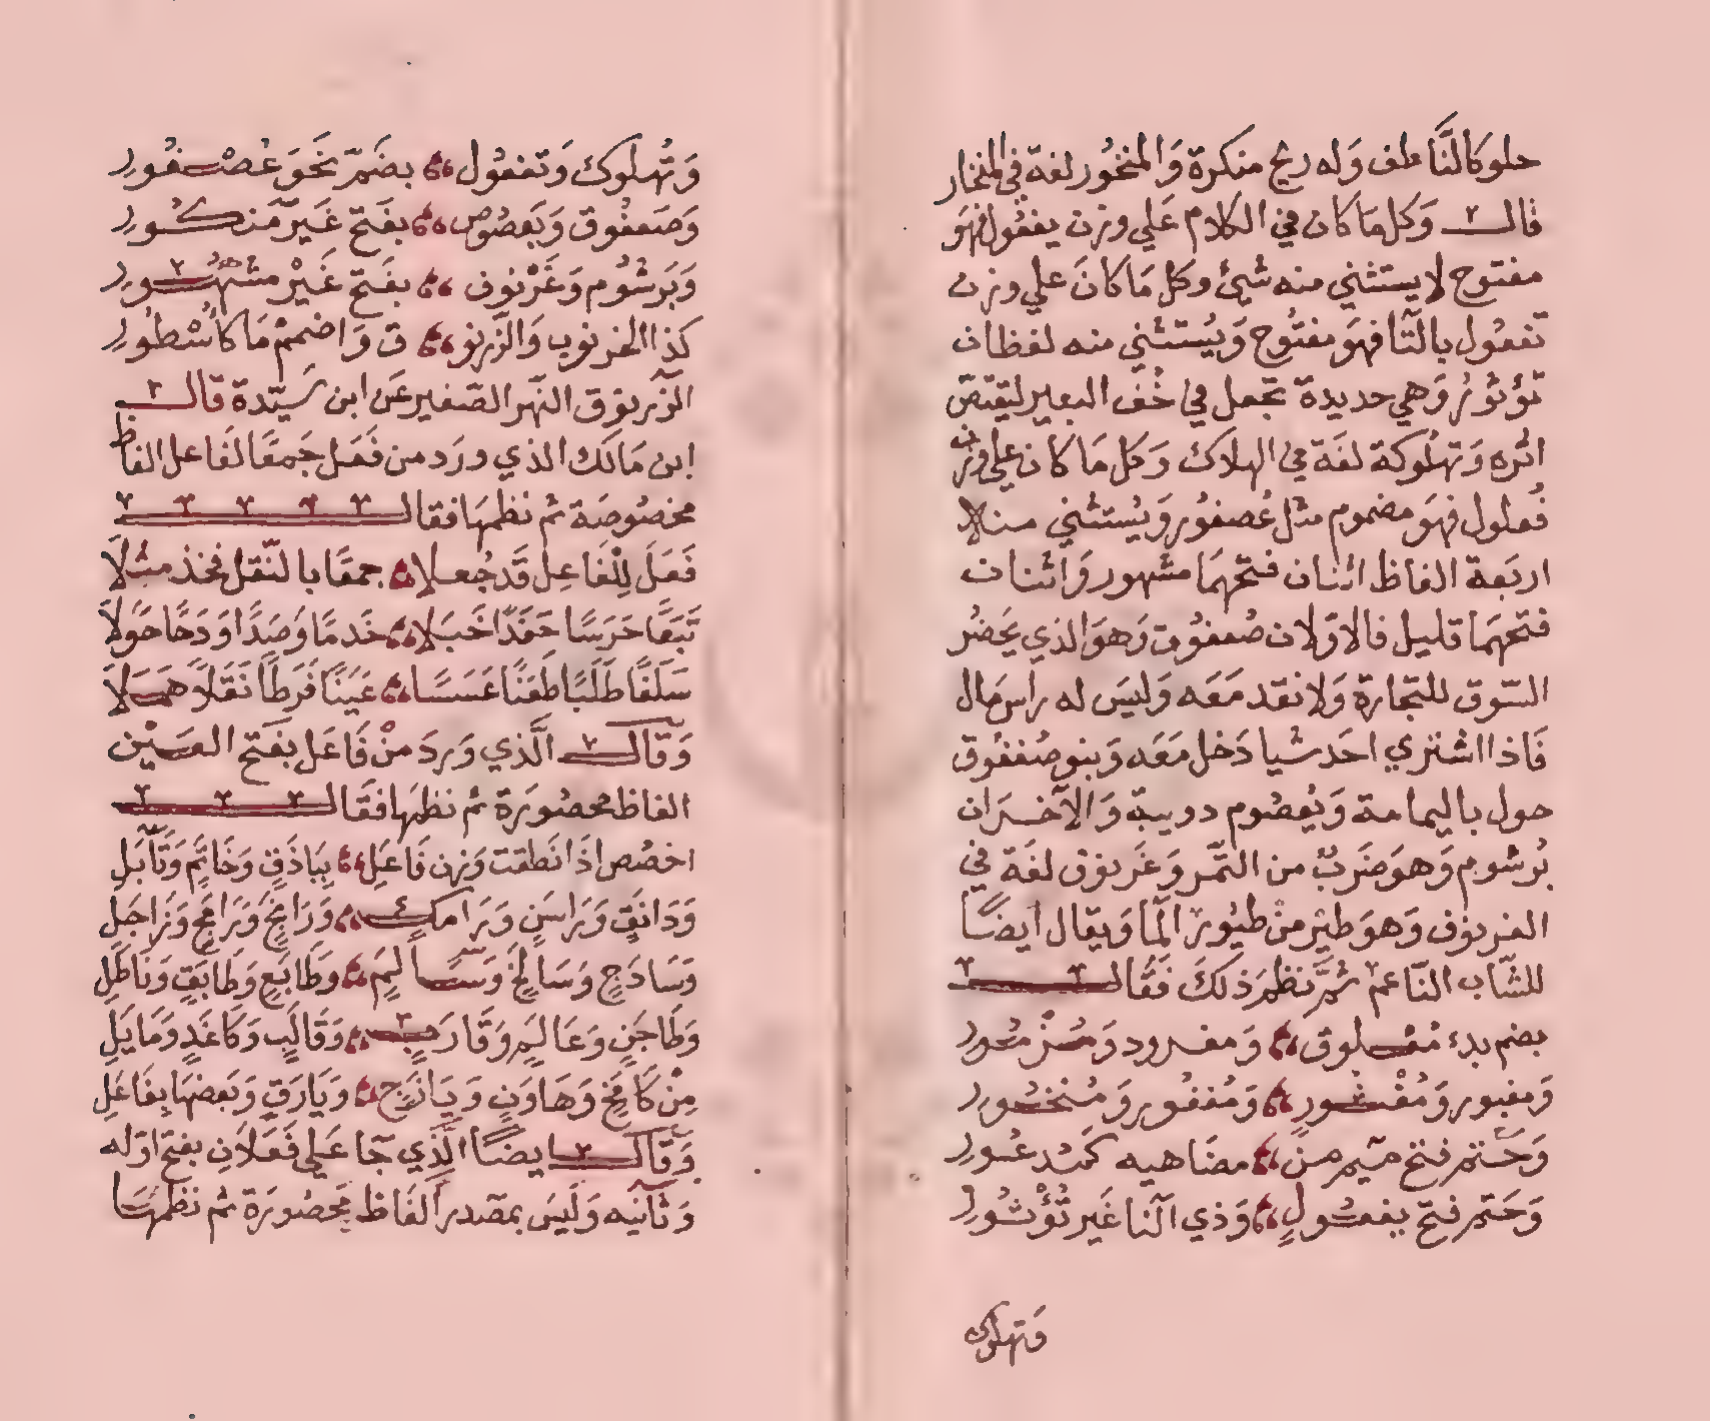 حلو كالنَّاطف وَله ريح منكرة وَالمنخُور لغة في المنخار
قالـــ وَكل مَا كان في الكلام عَلي وزن يفعُول فهَو
مفتوح لا يستثني منه شيئ وكل مَا كانَ علي وزن
تفعُول بالتّا فهوَ مفتُوح وَيُستثني منه لفظان
تؤثورُ وَهي حديدة تجعل في خُف البعير ليقتصّ
اثره وَتهلُوكة لغَة في الهلاك وَكل مَا كان علي وزن
فُعلول فهوَ مضموم مثل عُصفوُر وَيُستثني منه
اربَعة الفاظ اثنان فتحهمَا مشهور وَاثنان
فتحهمَا قليل فالاوّلان صُعفوُق وَهوَ الذي يَحضُر
السّوق للتجارة وَلا نقد مَعَه وَليسَ له راس مَال
فَاذا اشتري احَد شيا دَخل مَعَه وَبنو صُعفوُق
حول باليمامة وَيُعصُوم دويبة وَالآخرَان
بُرشوم وَهوَ ضَربٌ من التمّر وَغَرنوق لغَة في
الغرنوُق وَهوَ طيْر منْ طيوُر المَا وَيقال ايضًا
للشّاب النّاعم ثمَّ نظمَ ذلكَ فقَالـــ
بضم بدء مُعْـلوق وَمغرود وَمُـزْمُورِ
وَمغبور وَمُغْـثورٍ وَمُغفُور وَمُنخُـورِ
وَحَتم فتح ميّم منَ مضَاهيه كمَـذعُـورِ
وَحَتم فتح يفعُـولٍ وَذي التا غَير تُؤْثـوُرِ
وَتهلوك
وَتُهلوك وَتفعُول بضَمّ نحَوَ عُصْـفُورِ
وَصَعفُوق وَبَعصُوص بفَتح غَيرَ مَنكـُورِ
وَبَرشُوُم وَغَرْنوق بفَتح غَيْر مَشهُـورِ
كذا الخرنوب وَالزّرنو ق وَاضممْ مَا كاُسْطوُرِ
الزّرنوق النّهر الصّغير عَن ابن سَيّدة قالـــ
ابن مَالك الذي ورَد من فَعَل جَمعًا لفَاعل الفاظ
مخصُوصَة ثم نظمهَا فقالـــ
فَعَلَ لِلْفَاعِل قَد جُعـلا جمعًا بالنّقل فخذ مثـلَا
تَبَعًا حَرَسًا حَفَدًا خَبَـلا خَدمًا وَصَدًا وَدَحًا حَوَلَا
سَلَفًا طَلَبًا طَعَنًا عَسَسًا عَيَنًا فَرَطًا نَقَلًا هَمَـلَا
وَقالـــ الَّذي وَردَ منْ فَاعَل بفَتح العَـيْن
الفاظ محصُورَة ثم نظمهَا فقَالـــ
اخصُص اذَا نَطقت وَزن فَاعَلِ بِبَاذَقٍ وَخَاتَمٍ وَتَابَلِ
وَدَانَقٍ وَرَاسَنٍ وَرَامَكـٍ وَرَانَجٍ وَرَامَجٍ وَزَاجَلِ
وَسَاذَجٍ وَسَالَخٍ وَشَـالَمٍ وَطَابَعٍ وَطَابَقٍ وَنَاطَلِ
وَطَاجَنٍ وَعَالَمٍ وَقَارَبٍ وَقَالَبٍ وَكَاغَدٍ وَمَايَلِ
مِنْ كَامَخٍ وَهَاوَنٍ وَيَانَرَجٍ وَيَارَقٍ وَبَعضهَا بِفَاعَلِ
وَقَالـــ ايضًا الَّذي جَا عَلي فَعَلَانِ بفتح اوّله
وَثَانيه وَلَيسَ بمصدر الفَاظ مَحصُورَة ثم نظمهَـا